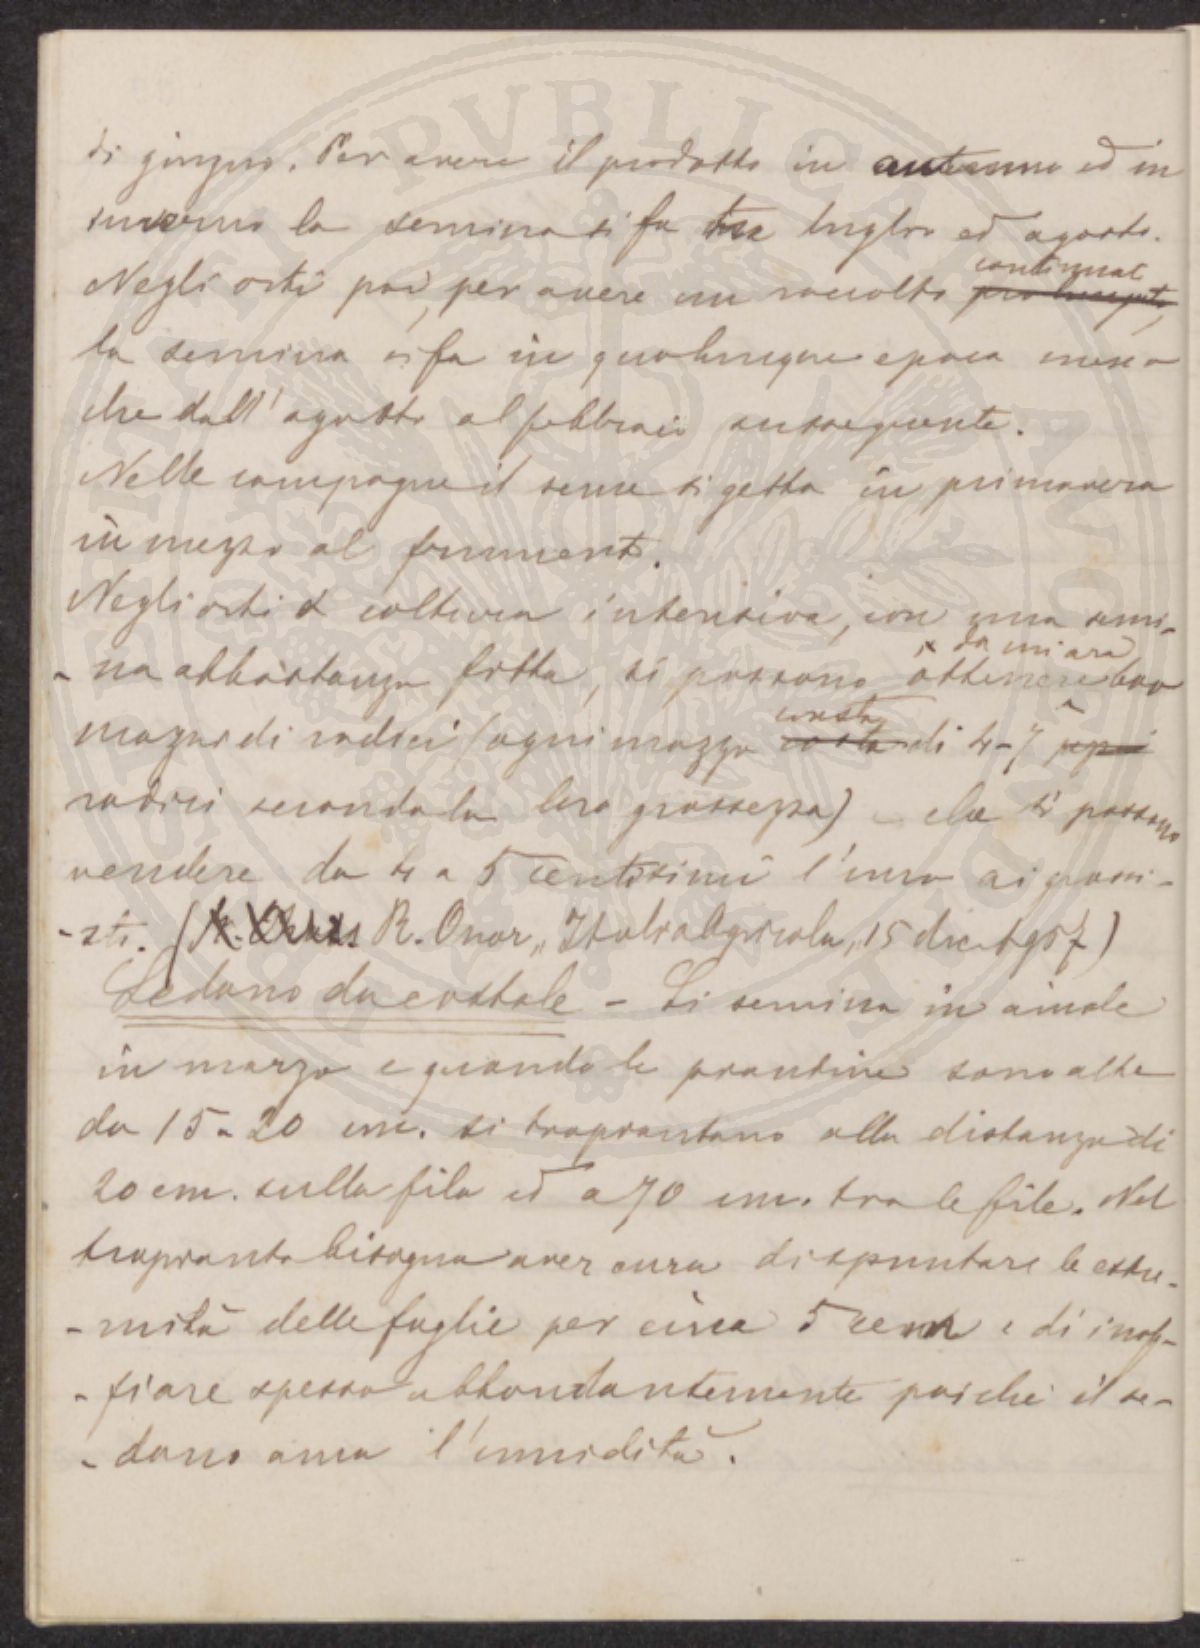 di giugno. Per avere il prodotto in autunno ed in
inverno la semina si fa tra luglio ed agosto.
Negli orti poi, per avere un raccolto continuo prolungato,
la semina si fa in qualunque epoca meno
che dall'agosto al febbraio susseguente.
Nelle campagne il seme si getta in primavera
in mezzo al frumento.
Negli orti a coltura intensiva, con una semi-
-na abbastanza fitta, si possono ottenere da un'ara 600
mazzi di radici (ogni mazzo consta di 4-7
radici secondo la loro grossezza) che si possono
vendere da 4 a 5 centesimi l'uno ai grossi-
-sti. (R. Onor, „Italia Agricola„ 15 dic. 1907)
Sedano da costole - Si semina in aiuole
in marzo e quando le piantine sono alte
da 15-20 cm. si trapiantano alla distanza di
20 cm. sulla fila ed a 70 cm. tra le file. Nel
trapianto bisogna aver cura di spuntare le estre-
-mità delle foglie per circa 5 cem e di inaf-
-fiare spesso abbondantemente poiché il se-
-dano ama l'umidità.